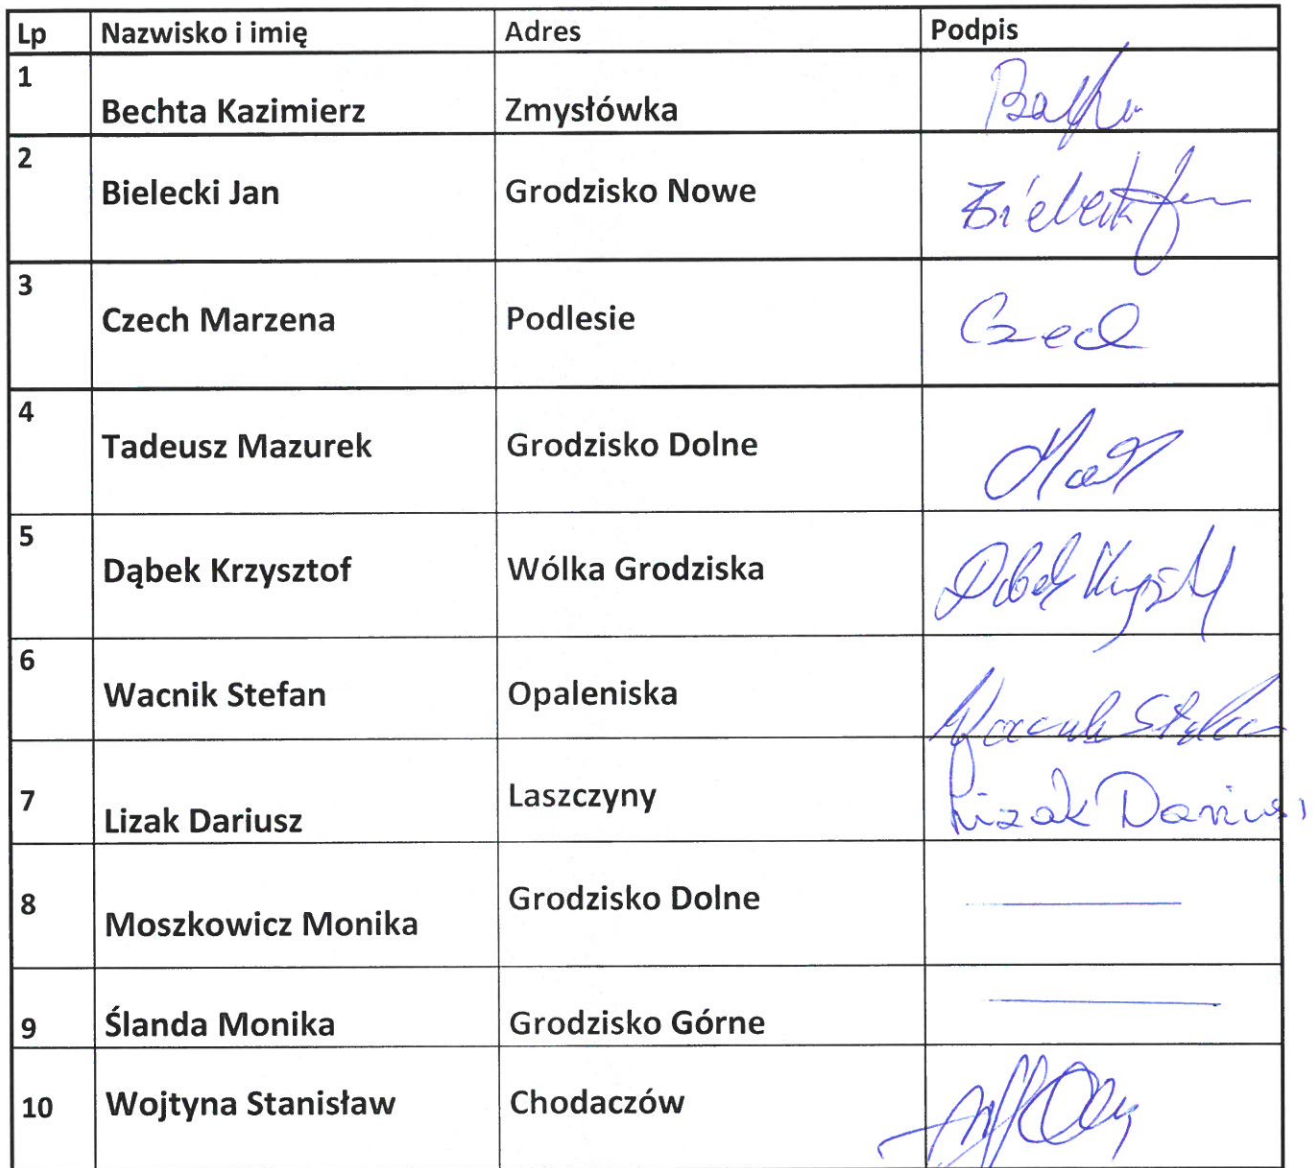 Lp Nazwisko i imię Adres Podpis
1 Bechta Kazimierz Zmysłówka
2 Bielecki Jan Grodzisko Nowe
3 Czech Marzena Podlesie Czech
4 Tadeusz Mazurek Grodzisko Dolne
5 Dąbek Krzysztof Wólka Grodziska
6 Wacnik Stefan Opaleniska
7 Lizak Dariusz Laszczyny Lizak Dariusz
8 Moszkowicz Monika Grodzisko Dolne
9 Ślanda Monika Grodzisko Górne
10 Wojtyna Stanisław Chodaczów